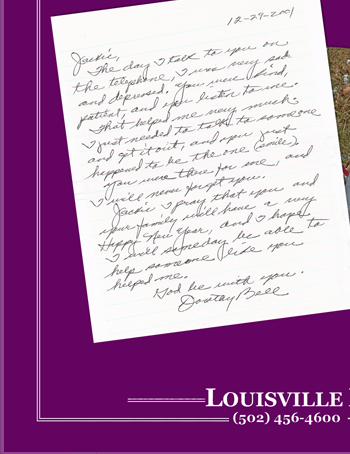 12-29-2001
Jackie,
The day I talk to you on
the telephone, I was very sad
and depressed. You were kind,
patient, and you listen to me.
That helped me very much.
I just needed to talk to someone
and get it out, and you just
happened to be the one (smile).
You were there for me, and
I will never forget you.
Jackie I pray that you and
your family will have a very
Happy New Year, and I hope
I will someday be able to
help someone like you
helped me.
God be with you.
Bell
LOUISVILLE
(502) 456-4600